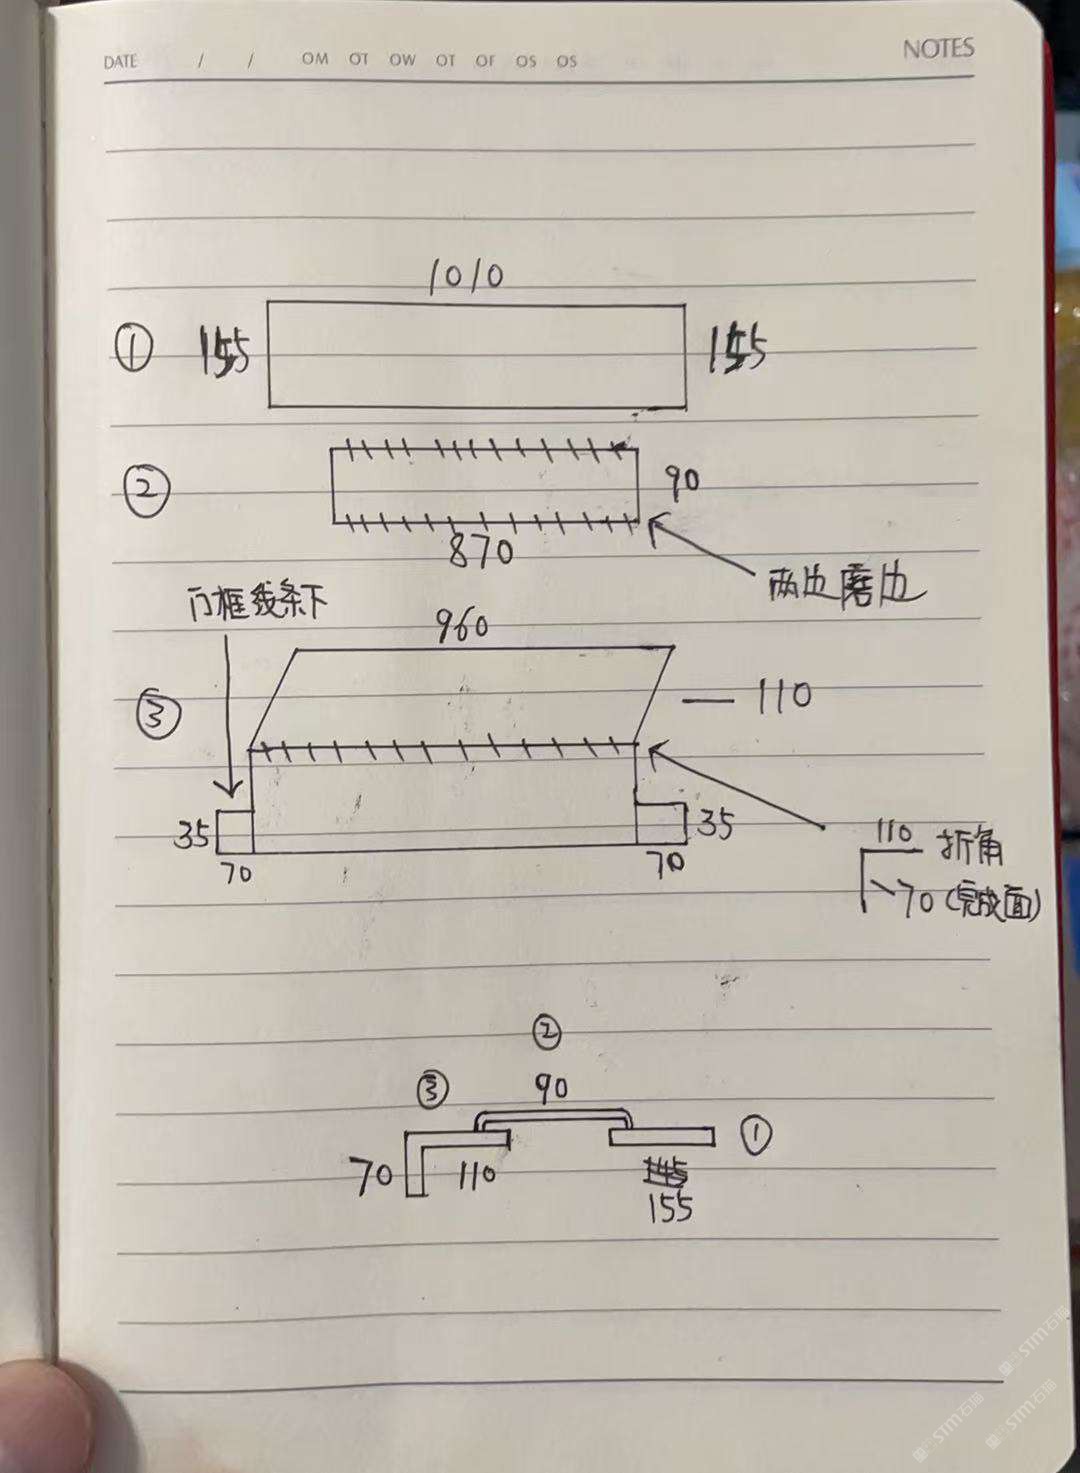 DATE / / OM OT OW OT OF OS OS NOTES
1010
① 155 155
② 90
870
两边磨边
门框线条下
960
③ 110
35 35
70 70
110 折角
70 (完成面)
②
③ 90
①
70 110
155
STM石猫
STM石猫
STM石猫